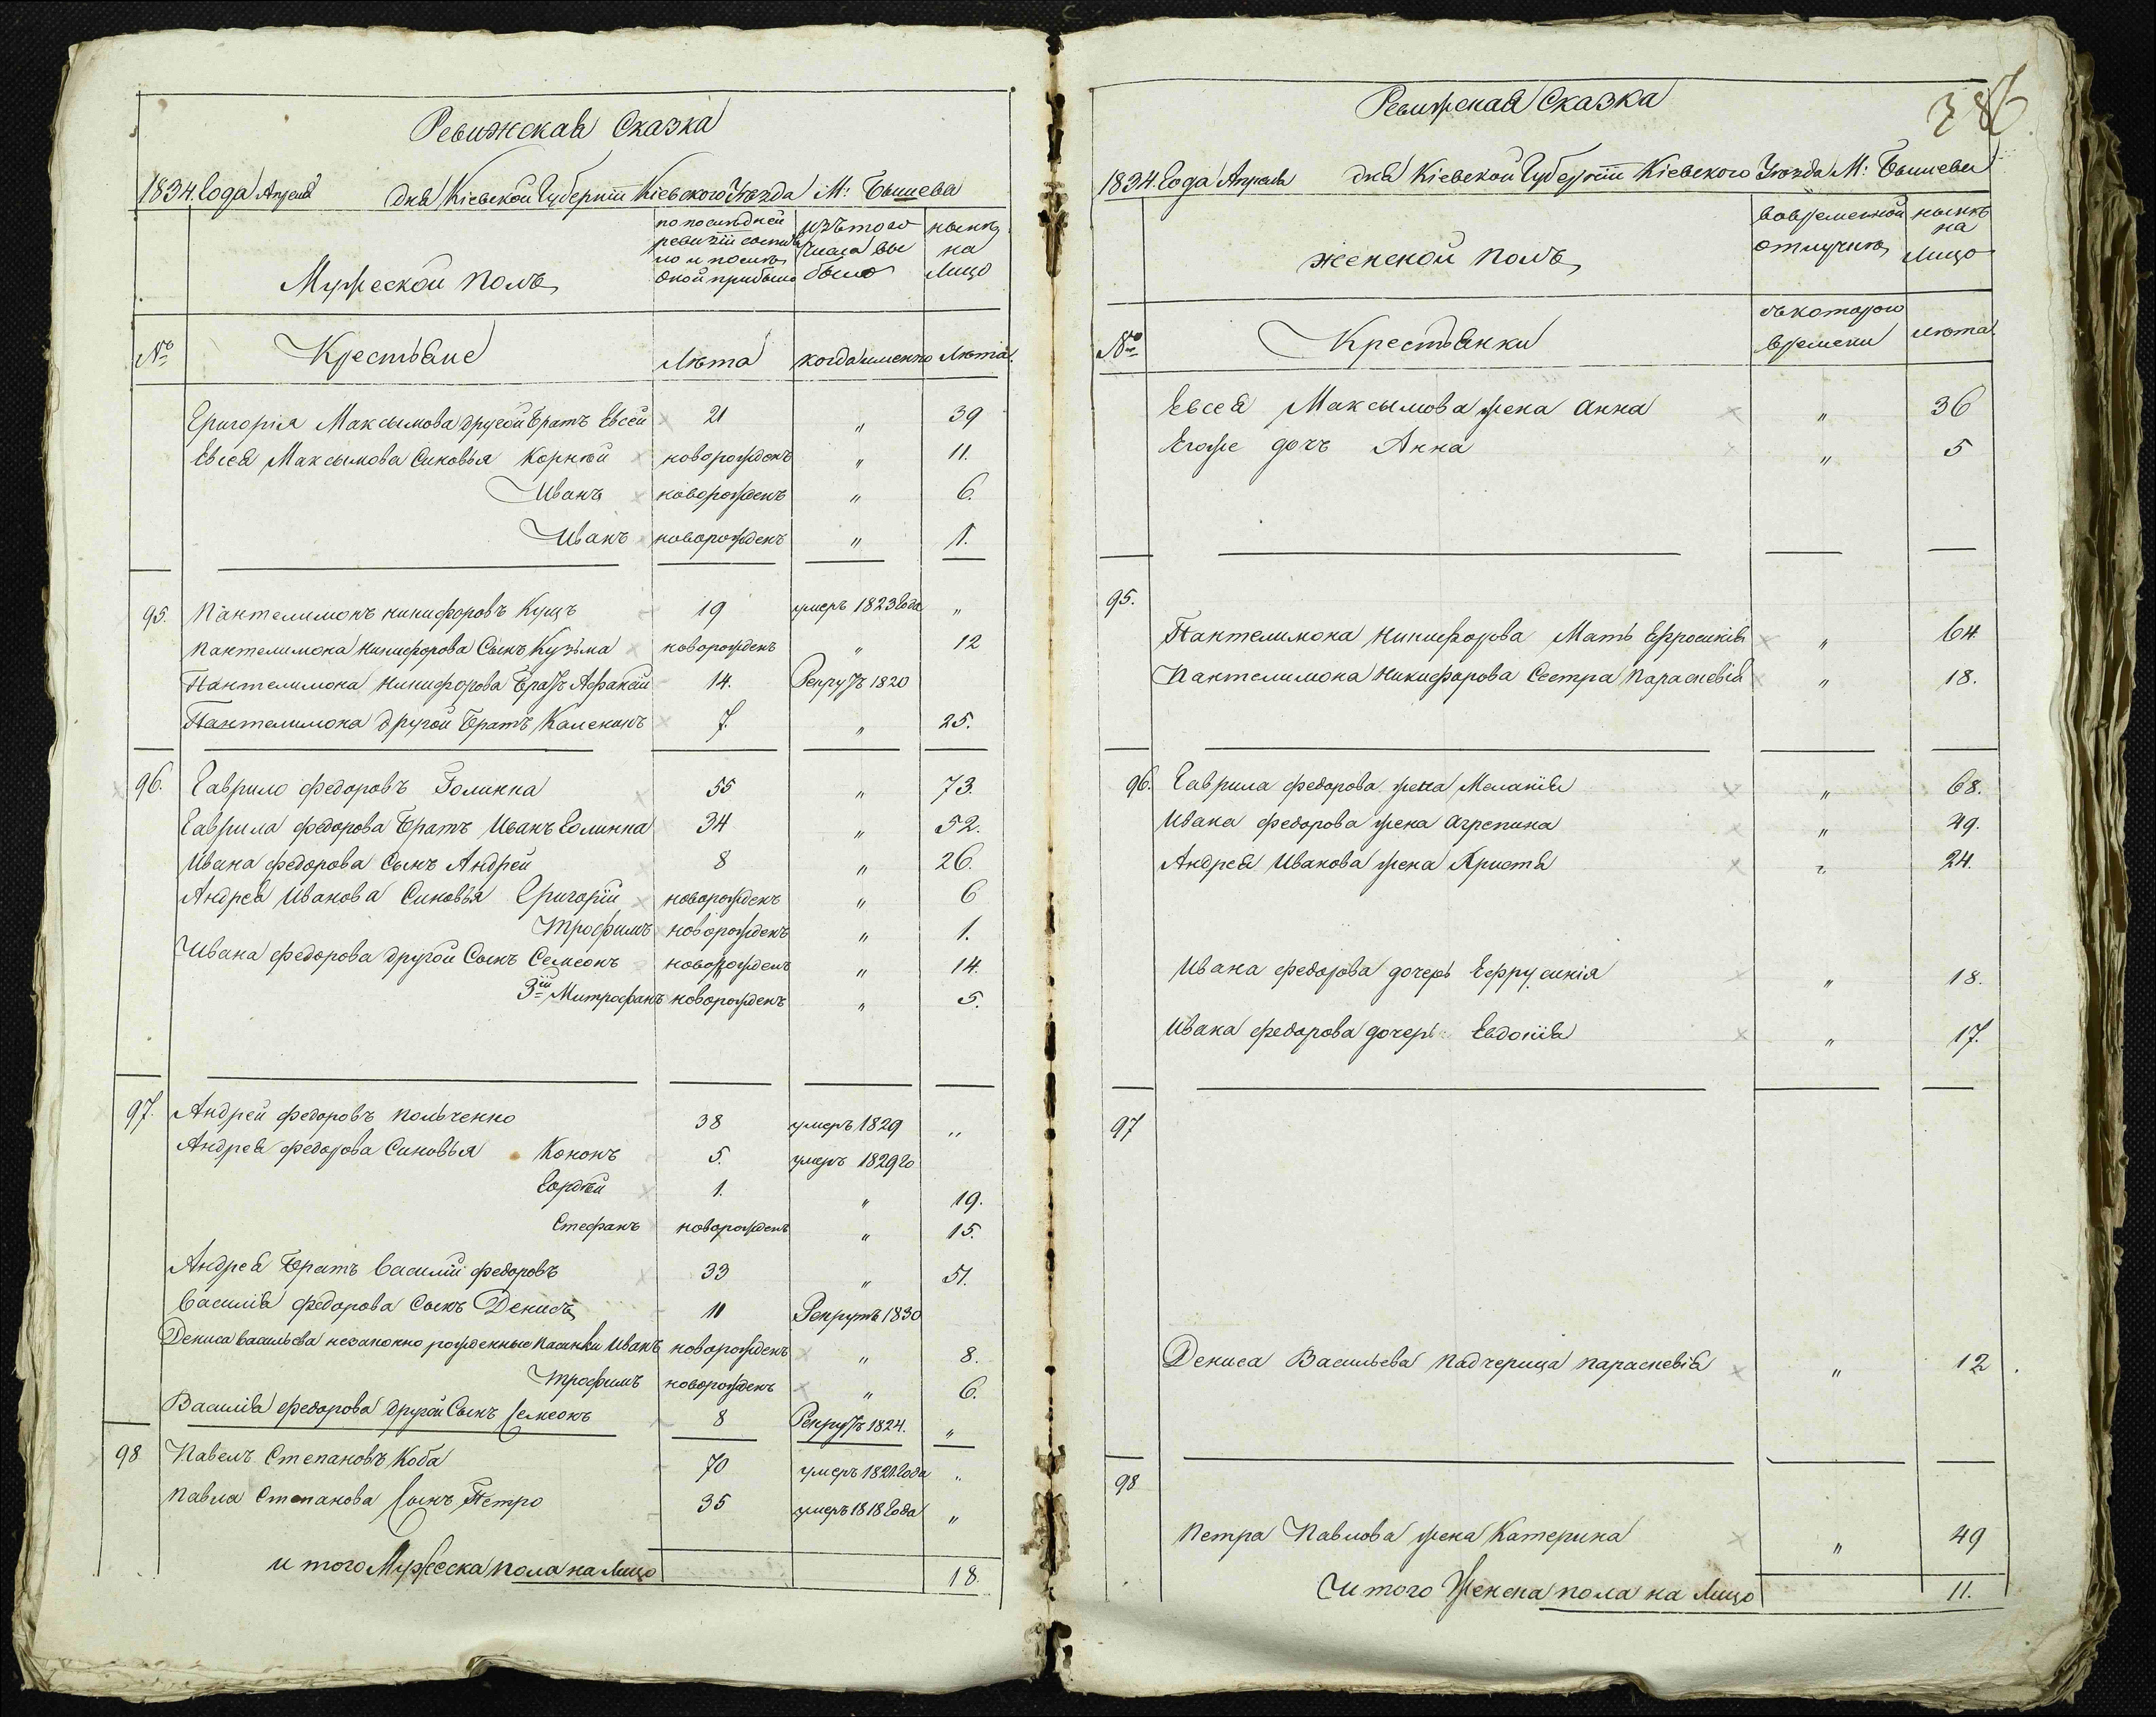 Ревижская Сказка
1834. Года Апреля дня Кіевской Губерніи Кіевского Уезда М: Бышева
Мужеской полъ
по последней ревизіи состояло и после оной прибыло
изъ того числа выбыло
ныне на лицо
№
Крестьяне
Лета
когда именно
Лета
Григорія Максымова другой братъ Евсей 21 " 39
Евсея Максымова Сиковья Корней новорожденъ " 11.
Иванъ новорожденъ " 6.
Иванъ новорожденъ " 1.
95. Пантелимонъ никифоровъ Кущъ 19 умеръ 1823 Года "
Пантелимона Никифорова Сынъ Кузьма новорожденъ " 12
Пантелимона Никифорова братъ Афанасій 14. Рекрутъ 1820
Пантелимона другой братъ Каленикъ 7. " 25.
96. Гаврило федоровъ Голинка 55 " 73.
Гаврила федорова братъ Иванъ Голинка 34 " 52.
Ивана федорова Сынъ Андрей 8 " 26.
Андрея Иванова Сиковья Григорій новорожденъ " 6
Трофимъ новорожденъ " 1.
Ивана федорова другой Сынъ Семеонъ новорожденъ " 14.
3ій Митрофанъ новорожденъ " 5.
97. Андрей федоровъ польченко 38 умеръ 1829 "
Андрея федорова Сиковья Кононъ 5. умеръ 1829 го
Гордей 1. " 19.
Стефанъ новорожденъ " 15.
Андрея братъ Василій федоровъ 33 " 51.
Василія федорова Сынъ Денисъ 11 Рекрутъ 1830
Дениса васильева незаконно рожденные пасинки Иванъ новорожденъ " 8.
Трофимъ новорожденъ " 6.
Василія федорова другой Сынъ Семеонъ 8 Рекрутъ 1824. "
98 Павелъ Степановъ Коба 70 умеръ 1821. Года "
Павла Степанова Сынъ Петро 35 умеръ 1818 Года "
и того Мужеска пола на лицо 18.
Ревижская Сказка
1834. Года Апреля дня Кіевской Губерніи Кіевского Уезда М: Бышева
женской полъ
вовременной отлучке
ныне на лицо
№
Крестьянки
съ которого времени
лета
Евсея Максымова жена Анна " 36
Егоже дочь Анна " 5
95.
Пантелимона Никифорова Мать Ефросинія " 64
Пантелимона Никифорова Сестра Параскевія " 18.
96. Гаврила федорова жена Меланія " 68.
Ивана федорова жена Агрепина " 49.
Андрея Иванова жена Христя " 24.
Ивана федорова дочерь Ефрусинія " 18.
Ивана федорова дочерь Евдокія " 17.
97
Дениса Васильева Падчерица параскевія " 12
98
Петра Павлова жена Катерина " 49
Итого Женска пола на лицо 11.